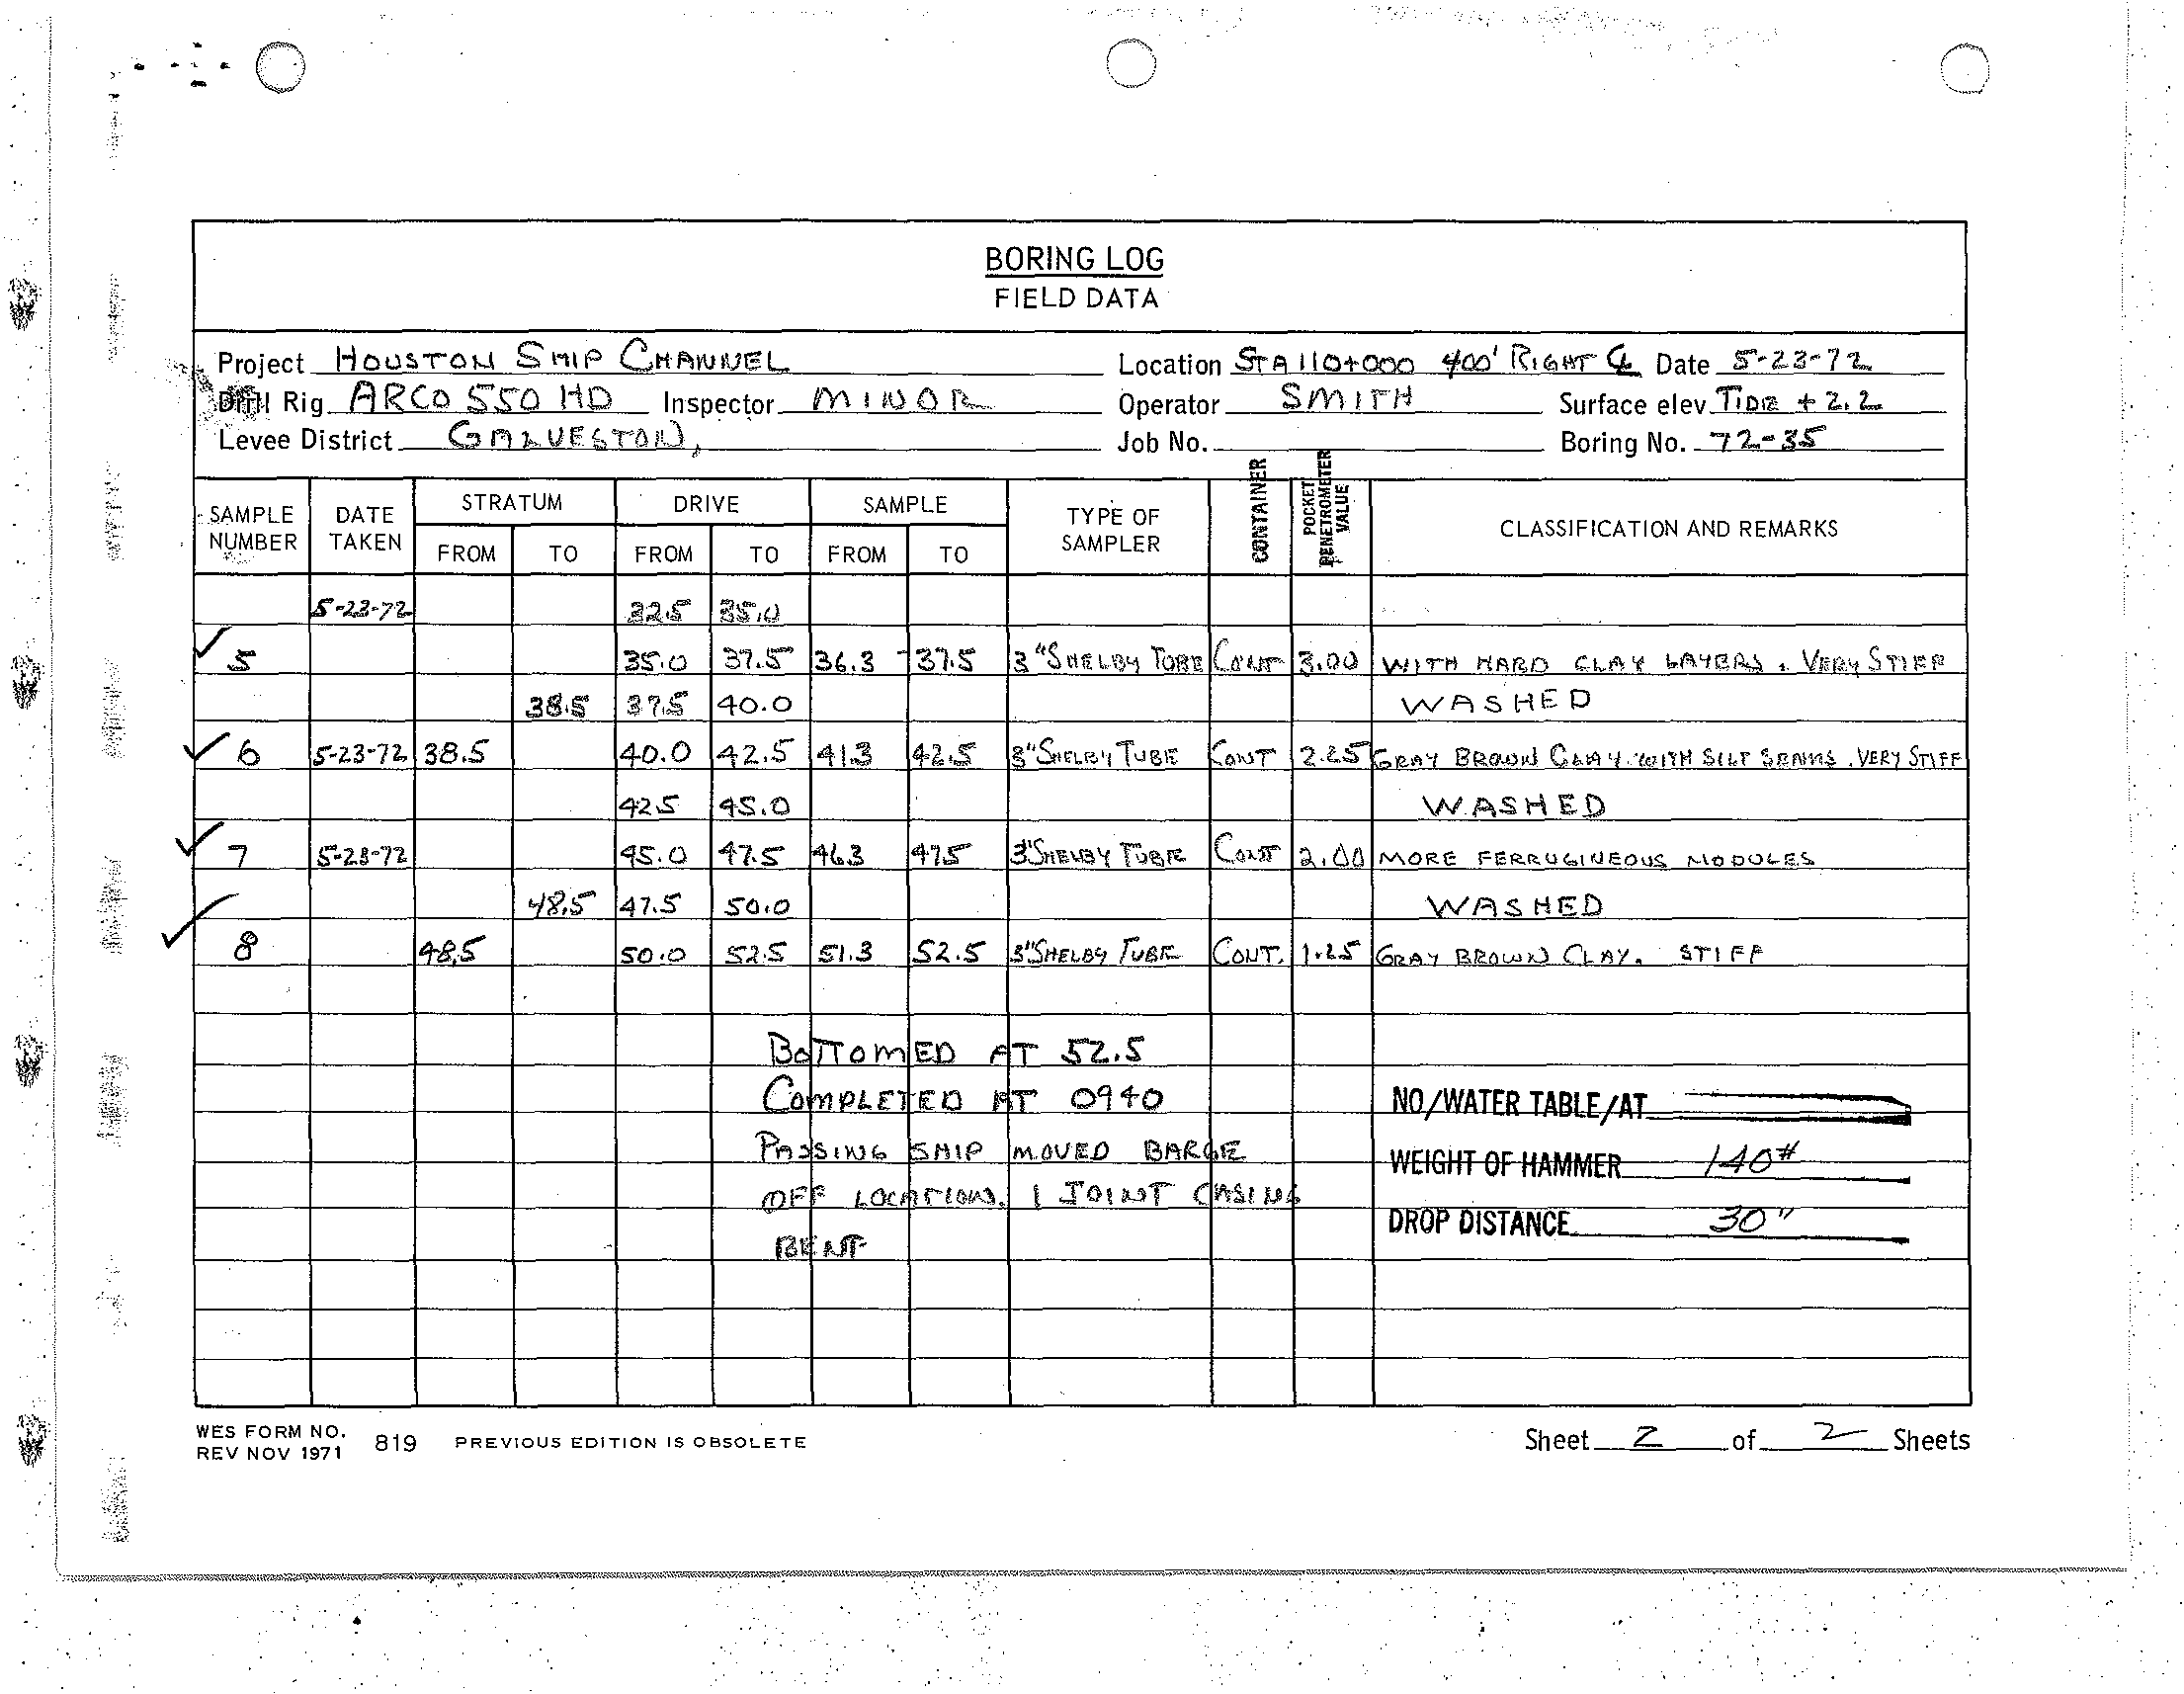 BORING LOG
FIELD DATA
Project HOUSTON SHIP CHANNEL Location STA 110+000 400' RIGHT ℄ Date 5-23-72
Drill Rig ARCO 550 HD Inspector MINOR Operator SMITH Surface elev. TIDE + 2.2
Levee District GALVESTON, Job No. Boring No. 72-35
SAMPLE NUMBER DATE TAKEN STRATUM FROM TO DRIVE FROM TO SAMPLE FROM TO TYPE OF SAMPLER CONTAINER POCKET PENETROMETER VALUE CLASSIFICATION AND REMARKS
5-23-72 32.5 35.0
5 35.0 37.5 36.3 37.5 3" SHELBY TUBE CONT 3.00 WITH HARD CLAY LAYERS. VERY STIFF
38.5 37.5 40.0 WASHED
6 5-23-72 38.5 40.0 42.5 41.3 42.5 3" SHELBY TUBE CONT 2.25 GRAY BROWN CLAY WITH SILT SEAMS. VERY STIFF
42.5 45.0 WASHED
7 5-23-72 45.0 47.5 46.3 47.5 3" SHELBY TUBE CONT 2.00 MORE FERRUGINEOUS NODULES
48.5 47.5 50.0 WASHED
8 48.5 50.0 52.5 51.3 52.5 3" SHELBY TUBE CONT. 1.25 GRAY BROWN CLAY. STIFF
BOTTOMED AT 52.5
COMPLETED AT 0940 NO/WATER TABLE/AT
PASSING SHIP MOVED BARGE WEIGHT OF HAMMER 140#
OFF LOCATION. 1 JOINT CASING DROP DISTANCE 30"
BENT
WES FORM NO. 819 PREVIOUS EDITION IS OBSOLETE Sheet 2 of 2 Sheets
REV NOV 1971